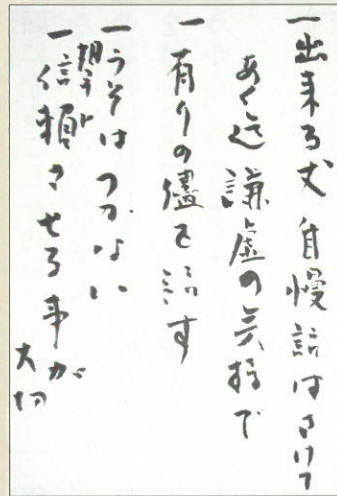 一出来る丈自慢話はさけて
あく迄謙虚の気持で
一有りの儘を話す
一うそはつかない
一相手に信頼させる事が
大切